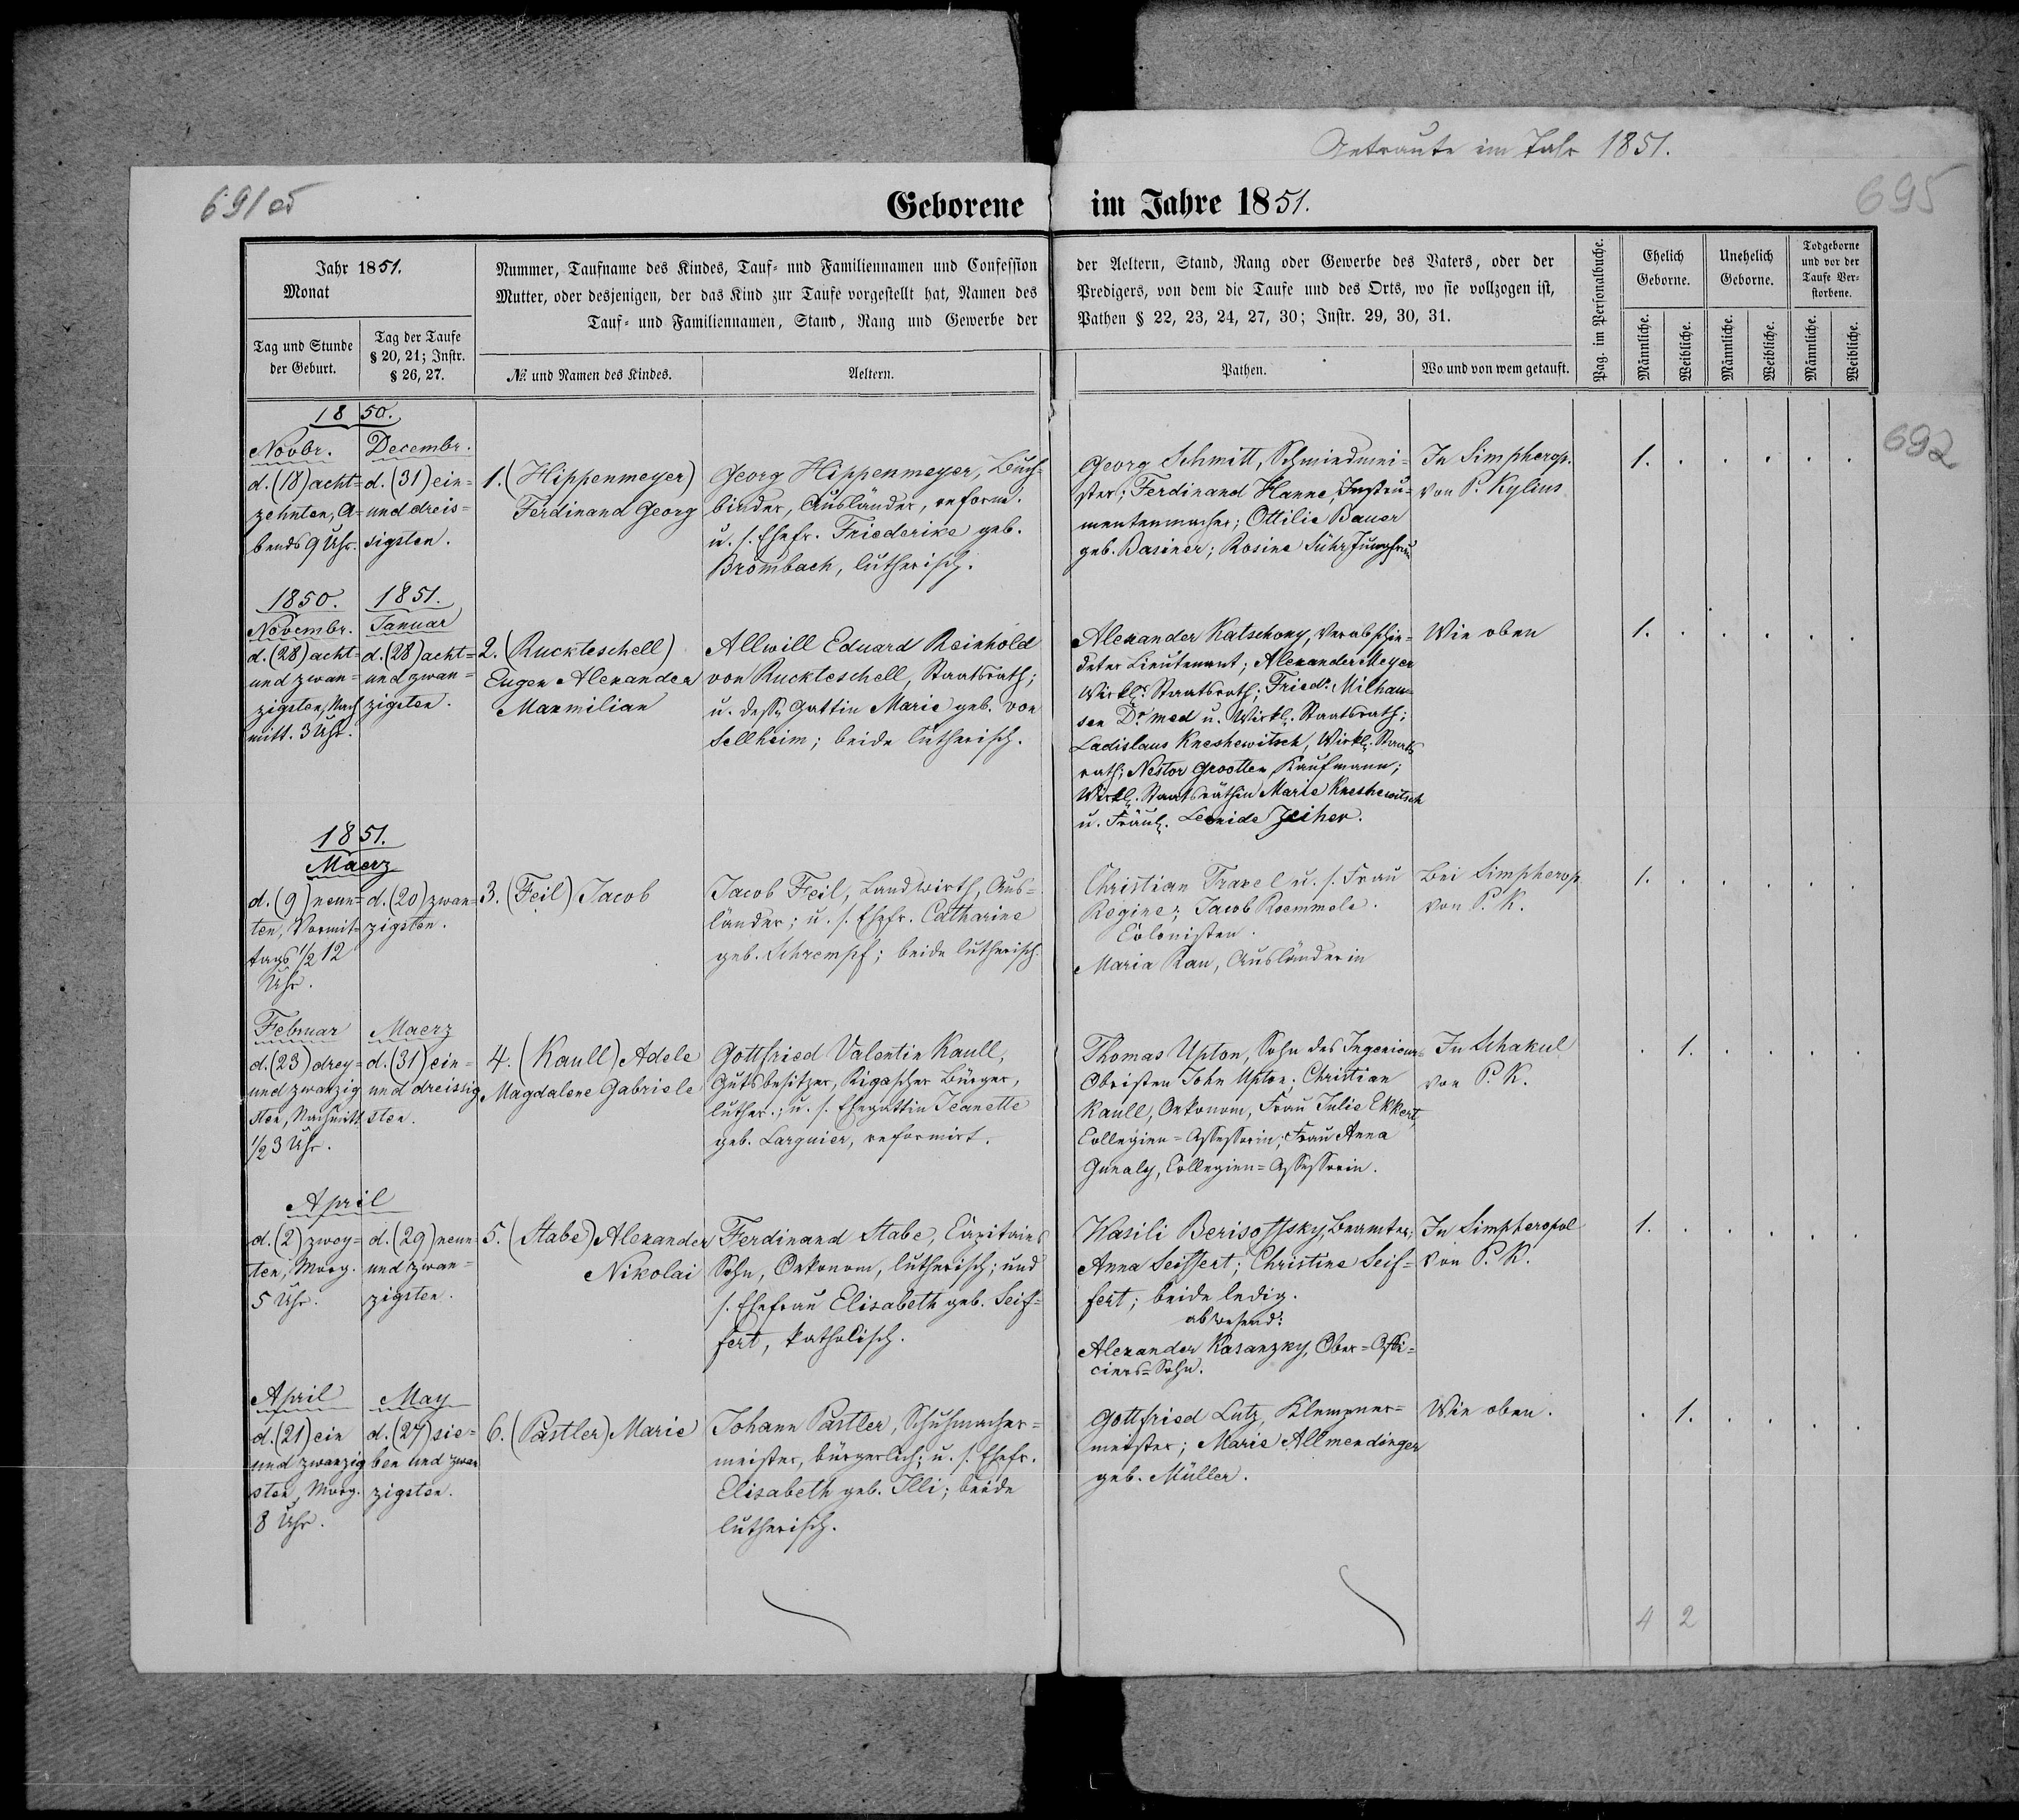 Getraute im Jahr 1851.
691 ob
695
Geborene im Jahre 1851.
Jahr 1851.
Monat
Tag und Stunde
der Geburt.
Tag der Taufe
§ 20, 21; Instr.
§ 26, 27.
Nummer, Taufname des Kindes, Tauf- und Familiennamen und Confession
Mutter, oder desjenigen, der das Kind zur Taufe vorgestellt hat, Namen des
Tauf- und Familiennamen, Stand, Rang und Gewerbe der
№ und Namen des Kindes.
Aeltern.
der Aeltern, Stand, Rang oder Gewerbe des Vaters, oder der
Predigers, von dem die Taufe und des Orts, wo sie vollzogen ist,
Pathen § 22, 23, 24, 27, 30; Instr. 29, 30, 31.
Pathen.
Wo und von wem getauft.
Pag. im Personalbuche.
Ehelich
Geborne.
Unehelich
Geborne.
Todgeborne
und vor der
Taufe Ver-
storbene.
Männliche.
Weibliche.
Männliche.
Weibliche.
Männliche.
Weibliche.
692
1850.
Novbr.
d. (18) acht=
zehnten, A=
bends 9 Uhr.
Decembr.
d. (31) ein=
und dreis=
sigsten.
1. (Hippenmeyer)
Ferdinand Georg
Georg Hippenmeyer, Buch=
binder, Ausländer, reform.
u. s. Ehefr. Friederike geb.
Brombach, lutherisch.
Georg Schmitt, Schmiedmei=
ster; Ferdinand Hanne, Instru=
mentenmacher; Ottilie Bauer
geb. Basiner; Rosine Führ, Jungfrau
In Simpherop.
von P. Kylius
1. . . . . .
1850.
Novembr.
d. (28) acht=
und zwan=
zigsten, Nach
mitt. 3 Uhr.
1851.
Januar
d. (28) acht=
und zwan=
zigsten.
2. (Ruckteschell)
Eugen Alexander
Maxmilian
Allwill Eduard Reinhold
von Ruckteschell, Staatsrath;
u. dess. Gattin Marie geb. von
Sellheim; beide lutherisch.
Alexander Katschony, verabschie=
deter Lieutenant; Alexander Meyer
Wirkl. Staatsrath; Friedr. Milhau=
sen Dr med u. Wirkl. Staatsrath;
Ladislaus Kneshewitsch, Wirkl. Staats
rath; Nestor Grootten, Kaufmann;
Wirkl. Staatsräthin Marie Kneshewitsch
u. Fräul. Leonide Zeiher.
Wie oben
1. . . . . .
1851.
Maerz
d. (9) neun=
ten, Vormit=
tags 1/2 12
Uhr.
d. (20) zwan=
zigsten.
3. (Feil) Jacob
Jacob Feil, Landwirth, Aus=
länder; u. s. Ehefr. Catharine
geb. Schrempf; beide lutherisch.
Christian Traxel u. s. Frau
Regine; Jacob Roemmele.
Colonisten.
Maria Rau, Ausländerin
Bei Simpherop
von P. K.
1. . . . . .
Februar
d. (23) drey=
und zwanzig
sten, Nachmitt.
1/2 3 Uhr.
Maerz
d. (31) ein=
und dreissig
sten.
4. (Kaull) Adele
Magdalene Gabriele
Gottfried Valentin Kaull,
Gutsbesitzer, Rigascher Bürger,
luther.; u. s. Ehegattin Jeanette
geb. Larguier, reformirt.
Thomas Upton, Sohn des Ingenieurs
Obristen John Upton; Christian
Kaull, Oekonom, Frau Julie Ekkert,
Collegien=Assessorin; Frau Anna
Gunaly, Collegien=Assessorin.
In Schakul
von P. K.
. 1. . . . .
April
d. (2) zwey=
ten, Morg.
5 Uhr.
d. (29) neun=
und zwan=
zigsten.
5. (Stabe) Alexander
Nikolai
Ferdinand Stabe, Capitains
Sohn, Oekonom, lutherisch; und
s. Ehefrau Elisabeth geb. Seif=
fert, katholisch.
Wasili Berisoffsky, Beamter;
Anna Seiffert; Christine Seif=
fert; beide ledig.
abwesend:
Alexander Kasanzky, Ober=Offi=
ciers=Sohn.
In Simpheropol
von P. K.
1. . . . . .
April
d. (21) ein
und zwanzig
sten, Morg.
8 Uhr.
May
d. (27) sie=
ben und zwan
zigsten.
6. (Pastler) Marie
Johann Pastler, Schuhmacher=
meister, bürgerlich; u. s. Ehefr.
Elisabeth geb. Illi; beide
lutherisch.
Gottfried Lutz, Klempner=
meister; Marie Allmendinger
geb. Müller.
Wie oben.
. 1. . . . .
4 2